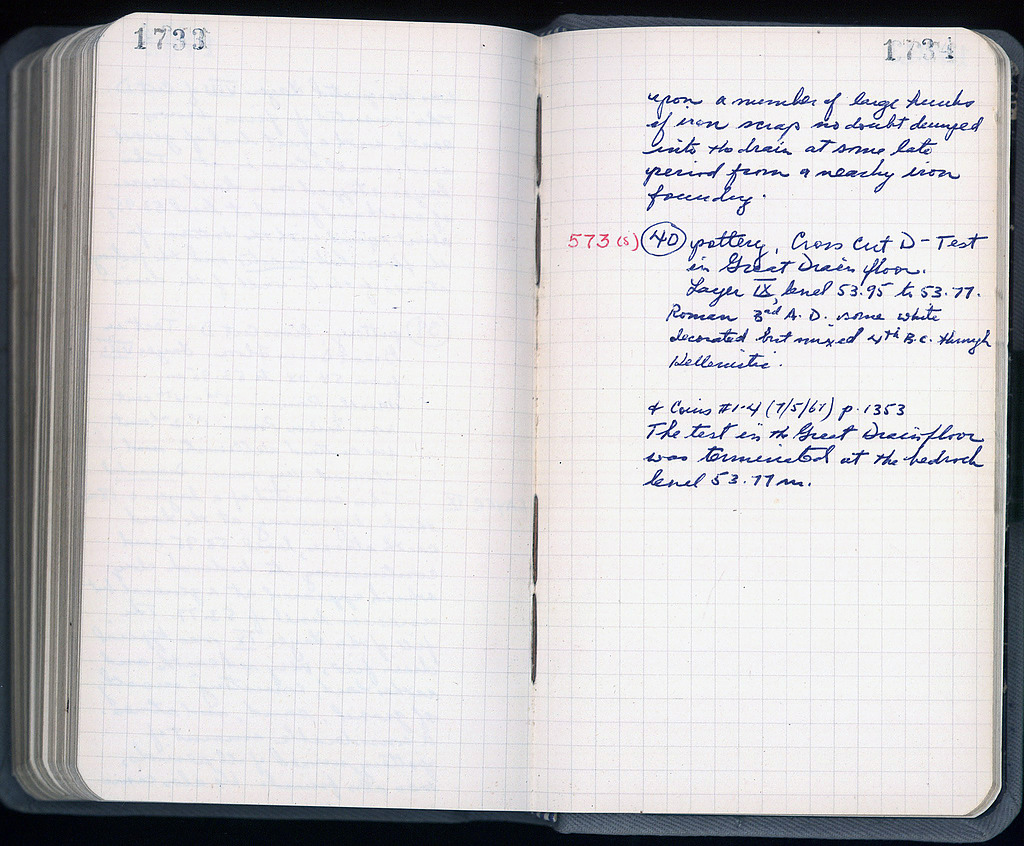 1733
1734
upon a number of large hunks
of iron scrap no doubt dumped
into the drain at some late
period from a nearby iron
foundry.
573 (s) 40 pottery, Cross Cut D - Test
in Great Drain floor.
Layer IX, level 53.95 to 53.77.
Roman 3rd A.D. some white
decorated but mixed 4th B.C. through
Hellenistic.
& Coins #1-4 (7/5/67) p. 1353
The test in the Great Drain floor
was terminated at the bedrock
level 53.77 m.